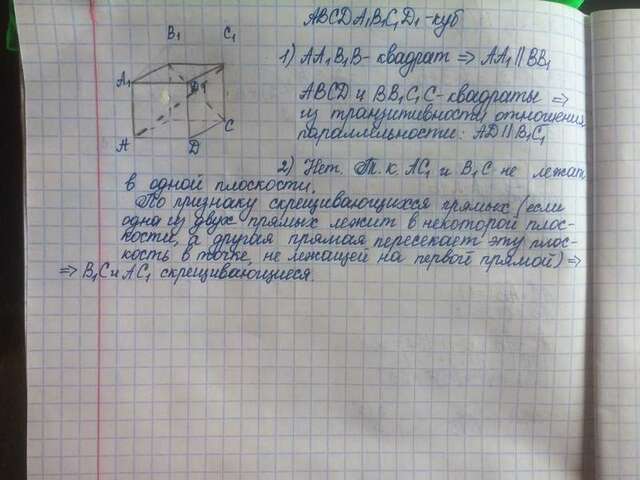 ABCDA₁B₁C₁D₁-куб
B₁ C₁
1) AA₁B₁B- квадрат ⇒ AA₁ || BB₁
A₁ D₁
ABCD и BB₁C₁C-квадраты ⇒
из транзитивности отношения
C
параллельности: AD || B₁C₁
A D
2) Нет. Т.к. AC₁ и B₁C не лежат
в одной плоскости.
По признаку скрещивающихся прямых (если
одна из двух прямых лежит в некоторой плос-
кости, а другая прямая пересекает эту плос-
кость в точке, не лежащей на первой прямой) ⇒
⇒ B₁C и AC₁ скрещивающиеся.